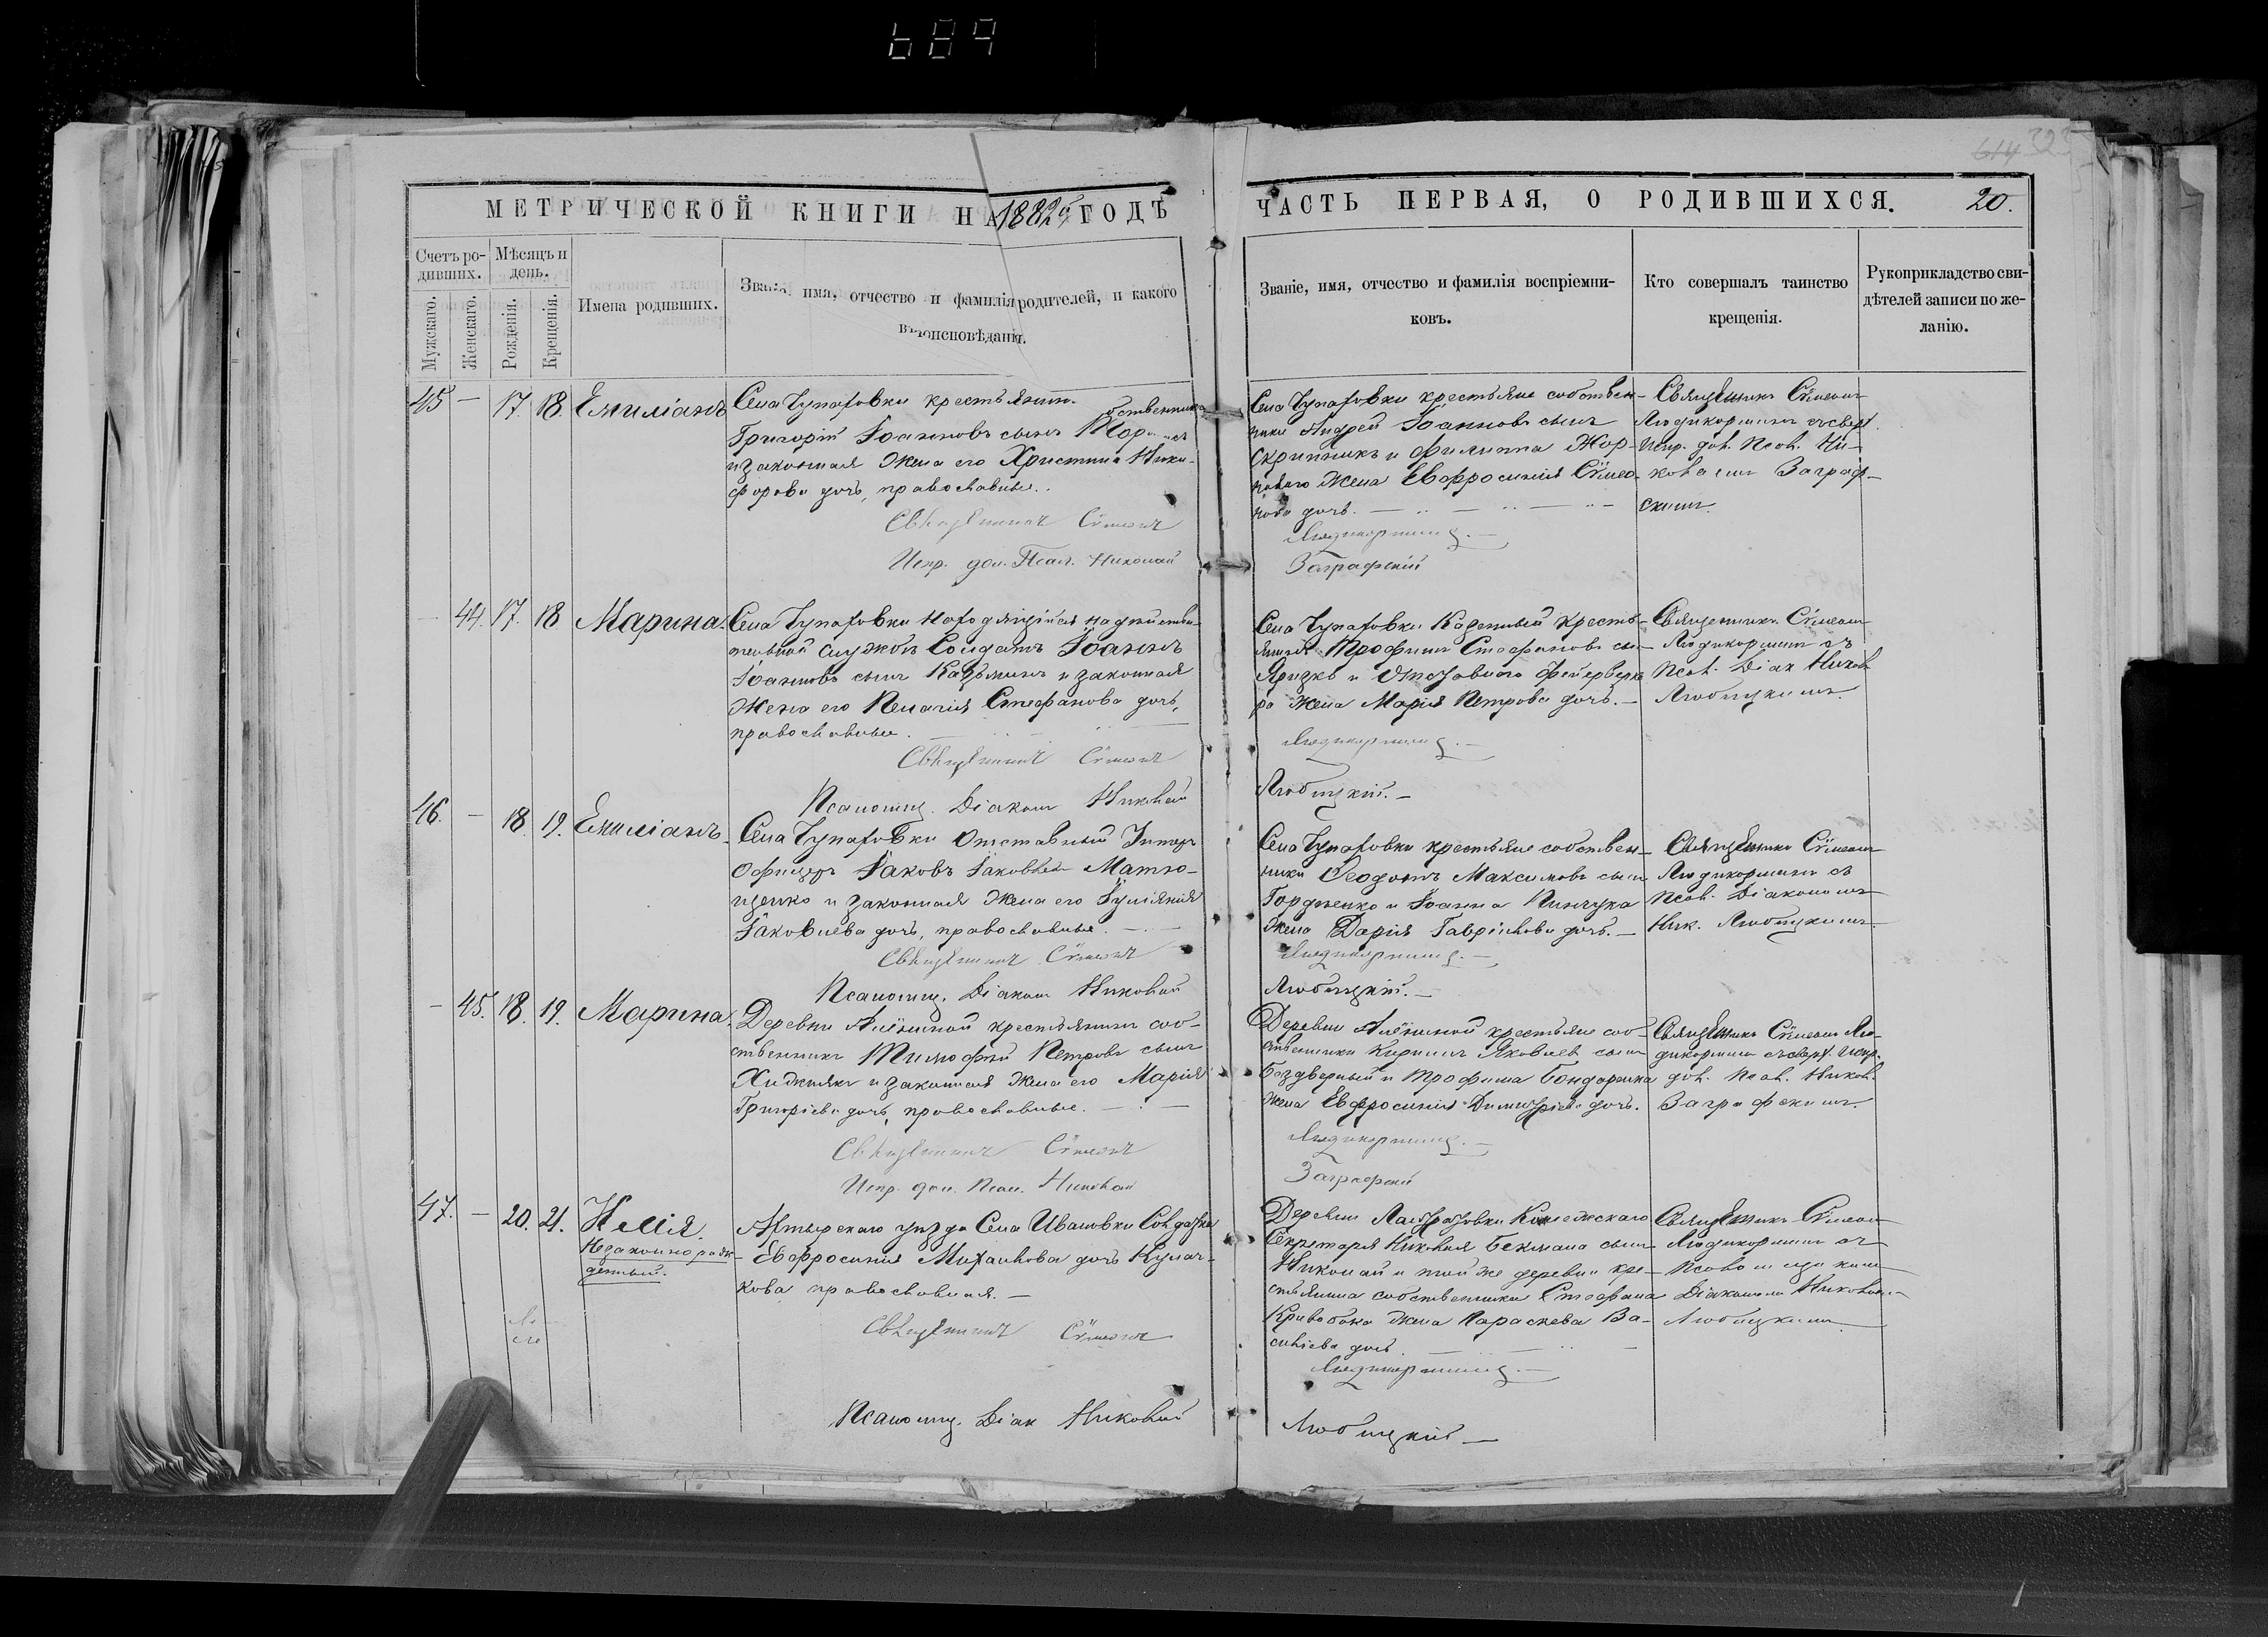 689
614 323
МЕТРИЧЕСКОЙ КНИГИ НА 1882й ГОДЪ
ЧАСТЬ ПЕРВАЯ, О РОДИВШИХСЯ. 20.
Счетъ родившихъ.
Мѣсяцъ и день.
Мужскаго.
Женскаго.
Рожденія.
Крещенія.
Имена родившихъ.
Званіе, имя, отчество и фамилія родителей, и какого
вѣроисповѣданія.
Званіе, имя, отчество и фамилія воспріемни-
ковъ.
Кто совершалъ таинство
крещенія.
Рукоприкладство сви-
дѣтелей записи по же-
ланію.
45 — 17. 18. Емиліанъ
Села Чупаховки крестьянинъ
собственникъ
Григорій Іоанновъ сынъ
и законная жена его Христина Ники-
форова дочь, православные.
Священникъ Сѵмеонъ
Испр. дол. Псал. Николай
Села Чупаховки крестьяне собствен-
ники Андрей Іоанновъ сынъ
Скрипникъ и Филиппа
жена Евфросинія Сѵмео-
нова дочь.
Людикорминъ.
Заграфскій
Священникъ Сѵмеонъ
Людикорминъ съ сверх.
Испр. дол. Псал. Ни-
колаемъ Заграф-
скимъ.
— 44. 17. 18 Марина.
Села Чупаховки находящійся на дѣйстви-
тельной службѣ Солдатъ Іоаннъ
Іоанновъ сынъ Кадькинъ и законная
жена его Пелагія Стефанова дочь,
православные.
Священникъ Сѵмеонъ
Псаломщ. Діаконъ Николай
Села Чупаховки Казенный кресть-
янинъ Трофимъ Стефановъ сы-
Яризкъ и Отставного фейерверке
ра жена Марія Петрова дочь.
Людикорминъ.
Любицкій.
Священникъ Сѵмеонъ
Людикорминъ съ
Псал. Діак. Никол.
Любицкимъ.
46. — 18. 19. Емиліанъ.
Села Чупаховки Отставный Унтеръ
Офицеръ Іаковъ Іаковлевъ Матю-
щенко и законная жена его Іуліянія
Іаковлева дочь, православные.
Священникъ Сѵмеонъ
Псаломщ. Діаконъ Николай
Села Чупаховки крестьяне собствен-
ники Ѳеодотъ Максимовъ сынъ
Гордіенко и Іоанна Пинчука
жена Дарія Гавріилова дочь.
Людикорминъ.
Любицкій.
Священникъ Сѵмеонъ
Людикорминъ съ
Псал. Діакономъ
Ник. Любицкимъ.
— 45. 18. 19. Марина.
Деревни Алёшиной крестьянинъ соб-
ственникъ Тимофей Петровъ сынъ
Хиджнякъ и законная жена его Марія
Григоріева дочь, православные.
Священникъ Сѵмеонъ
Испр. дол. Псал. Николай
Деревни Алёшиной крестьяне соб-
ственники Кириллъ Яковлевъ сынъ
Бездверный и Трофима Бондаренка
жена Евфросинія Димитріева дочь.
Людикорминъ.
Заграфскій
Священникъ Сѵмеонъ Лю-
дикорминъ съ сверх. Испр.
дол. Псал. Никол.
Заграфскимъ.
47. — 20. 21. Илія.
Незаконнорож-
денный.
Ахтырскаго уѣзда Села Ивановки Солдатка
Евфросинія Михаилова дочь Кулач-
кова православная.
Священникъ Сѵмеонъ
Псаломщ. Діак Николай
Деревни Коллежскаго
Секретаря Николая Бекмана сынъ
Николай и той же деревни кре-
стьянина собственника Стефана
Кривобока жена Параскева Ва-
силіева дочь.
Людикорминъ.
Любицкій
Священникъ Сѵмеонъ
Людикорминъ съ
Псаломщикомъ
Діакономъ Николаемъ
Любицкимъ